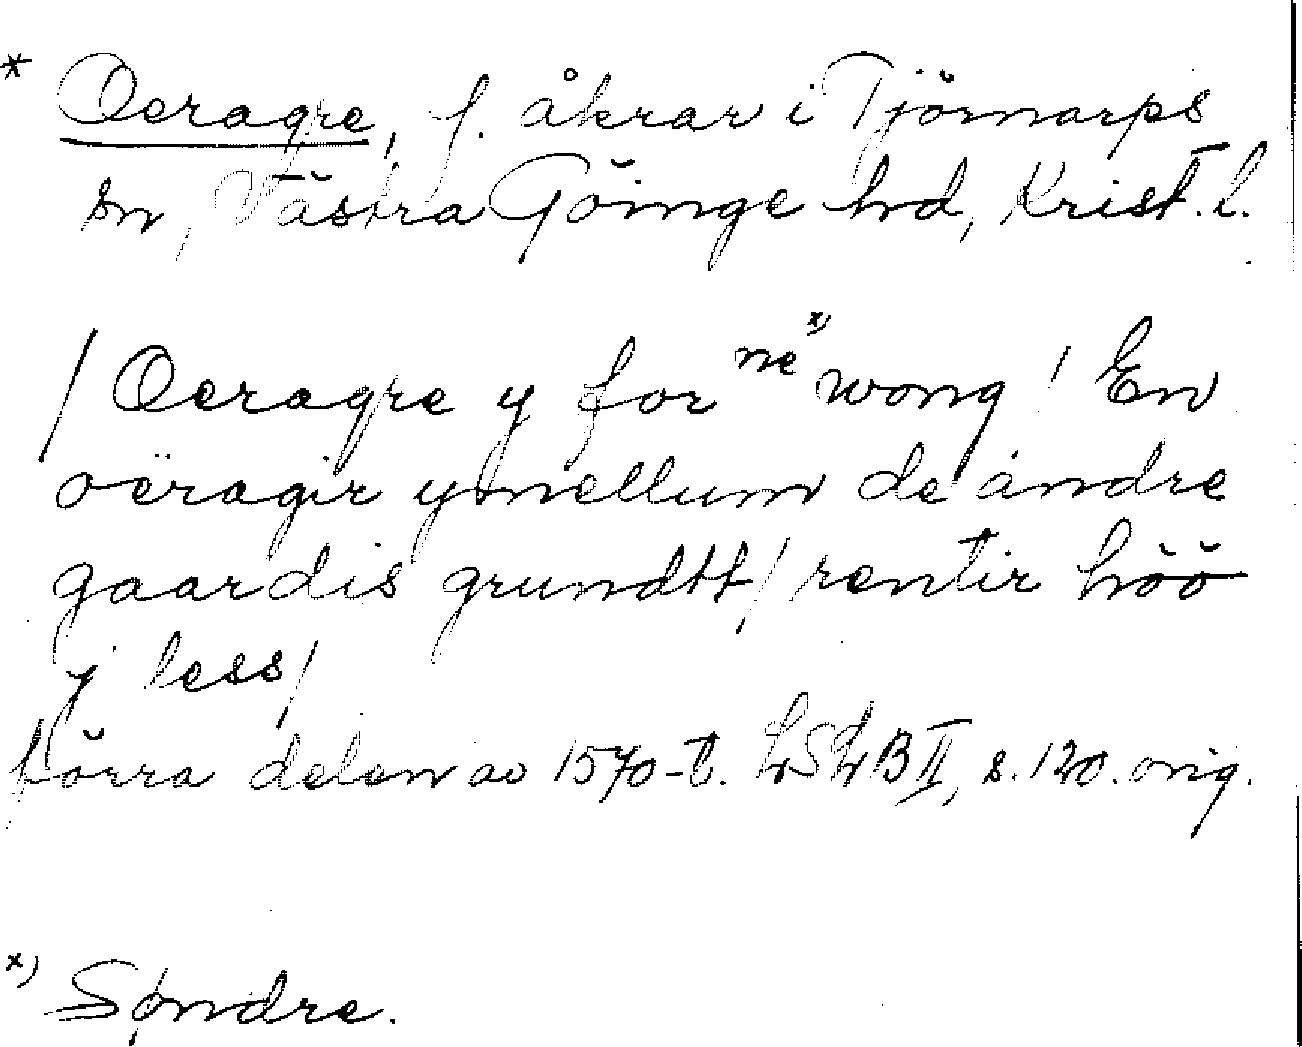 * Oeragre, f. åkrar i Tjörnarps
sn, Västra Göinge hd, Krist. l.
/ Oeragre y for ne x) wong / En
oëragir ymellum de andre
gaardis grundtt / rentir höö
y less /
förra delen av 1570-t. LSLB II, s. 120. orig.
x) Søndre.